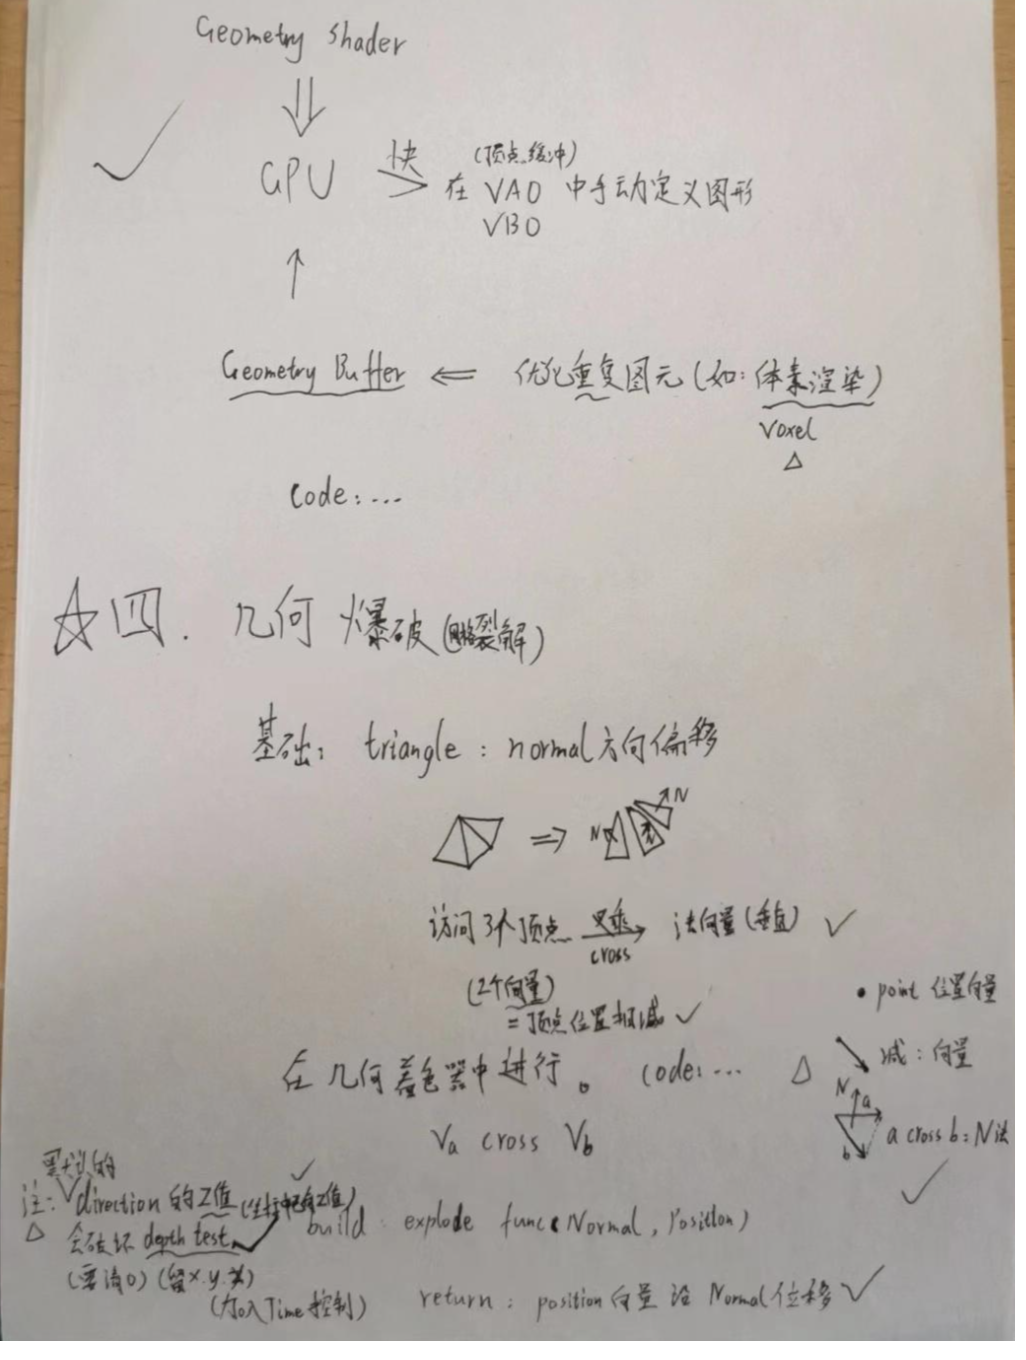 Geometry shader
GPU 快 > 在 VAO 中手动定义图形
(顶点缓冲)
VBO
Geometry Buffer ⇐ 优化重复图元(如:体素渲染)
Voxel
code:...
☆四. 几何爆破(网格裂解)
基础: triangle : normal方向偏移
N N
访问3个顶点 叉乘 cross → 法向量(垂直) ✓
(2个向量)
=顶点位置相减 ✓
• point 位置向量
减:向量
在几何着色器中进行。 code:... △
N a
b a cross b:N法
Va cross Vb
注: direction的Z值
会破坏 depth test
build: explode func(Normal, Position)
(要清0)
(加入Time控制) return: position向量沿Normal位移 ✓